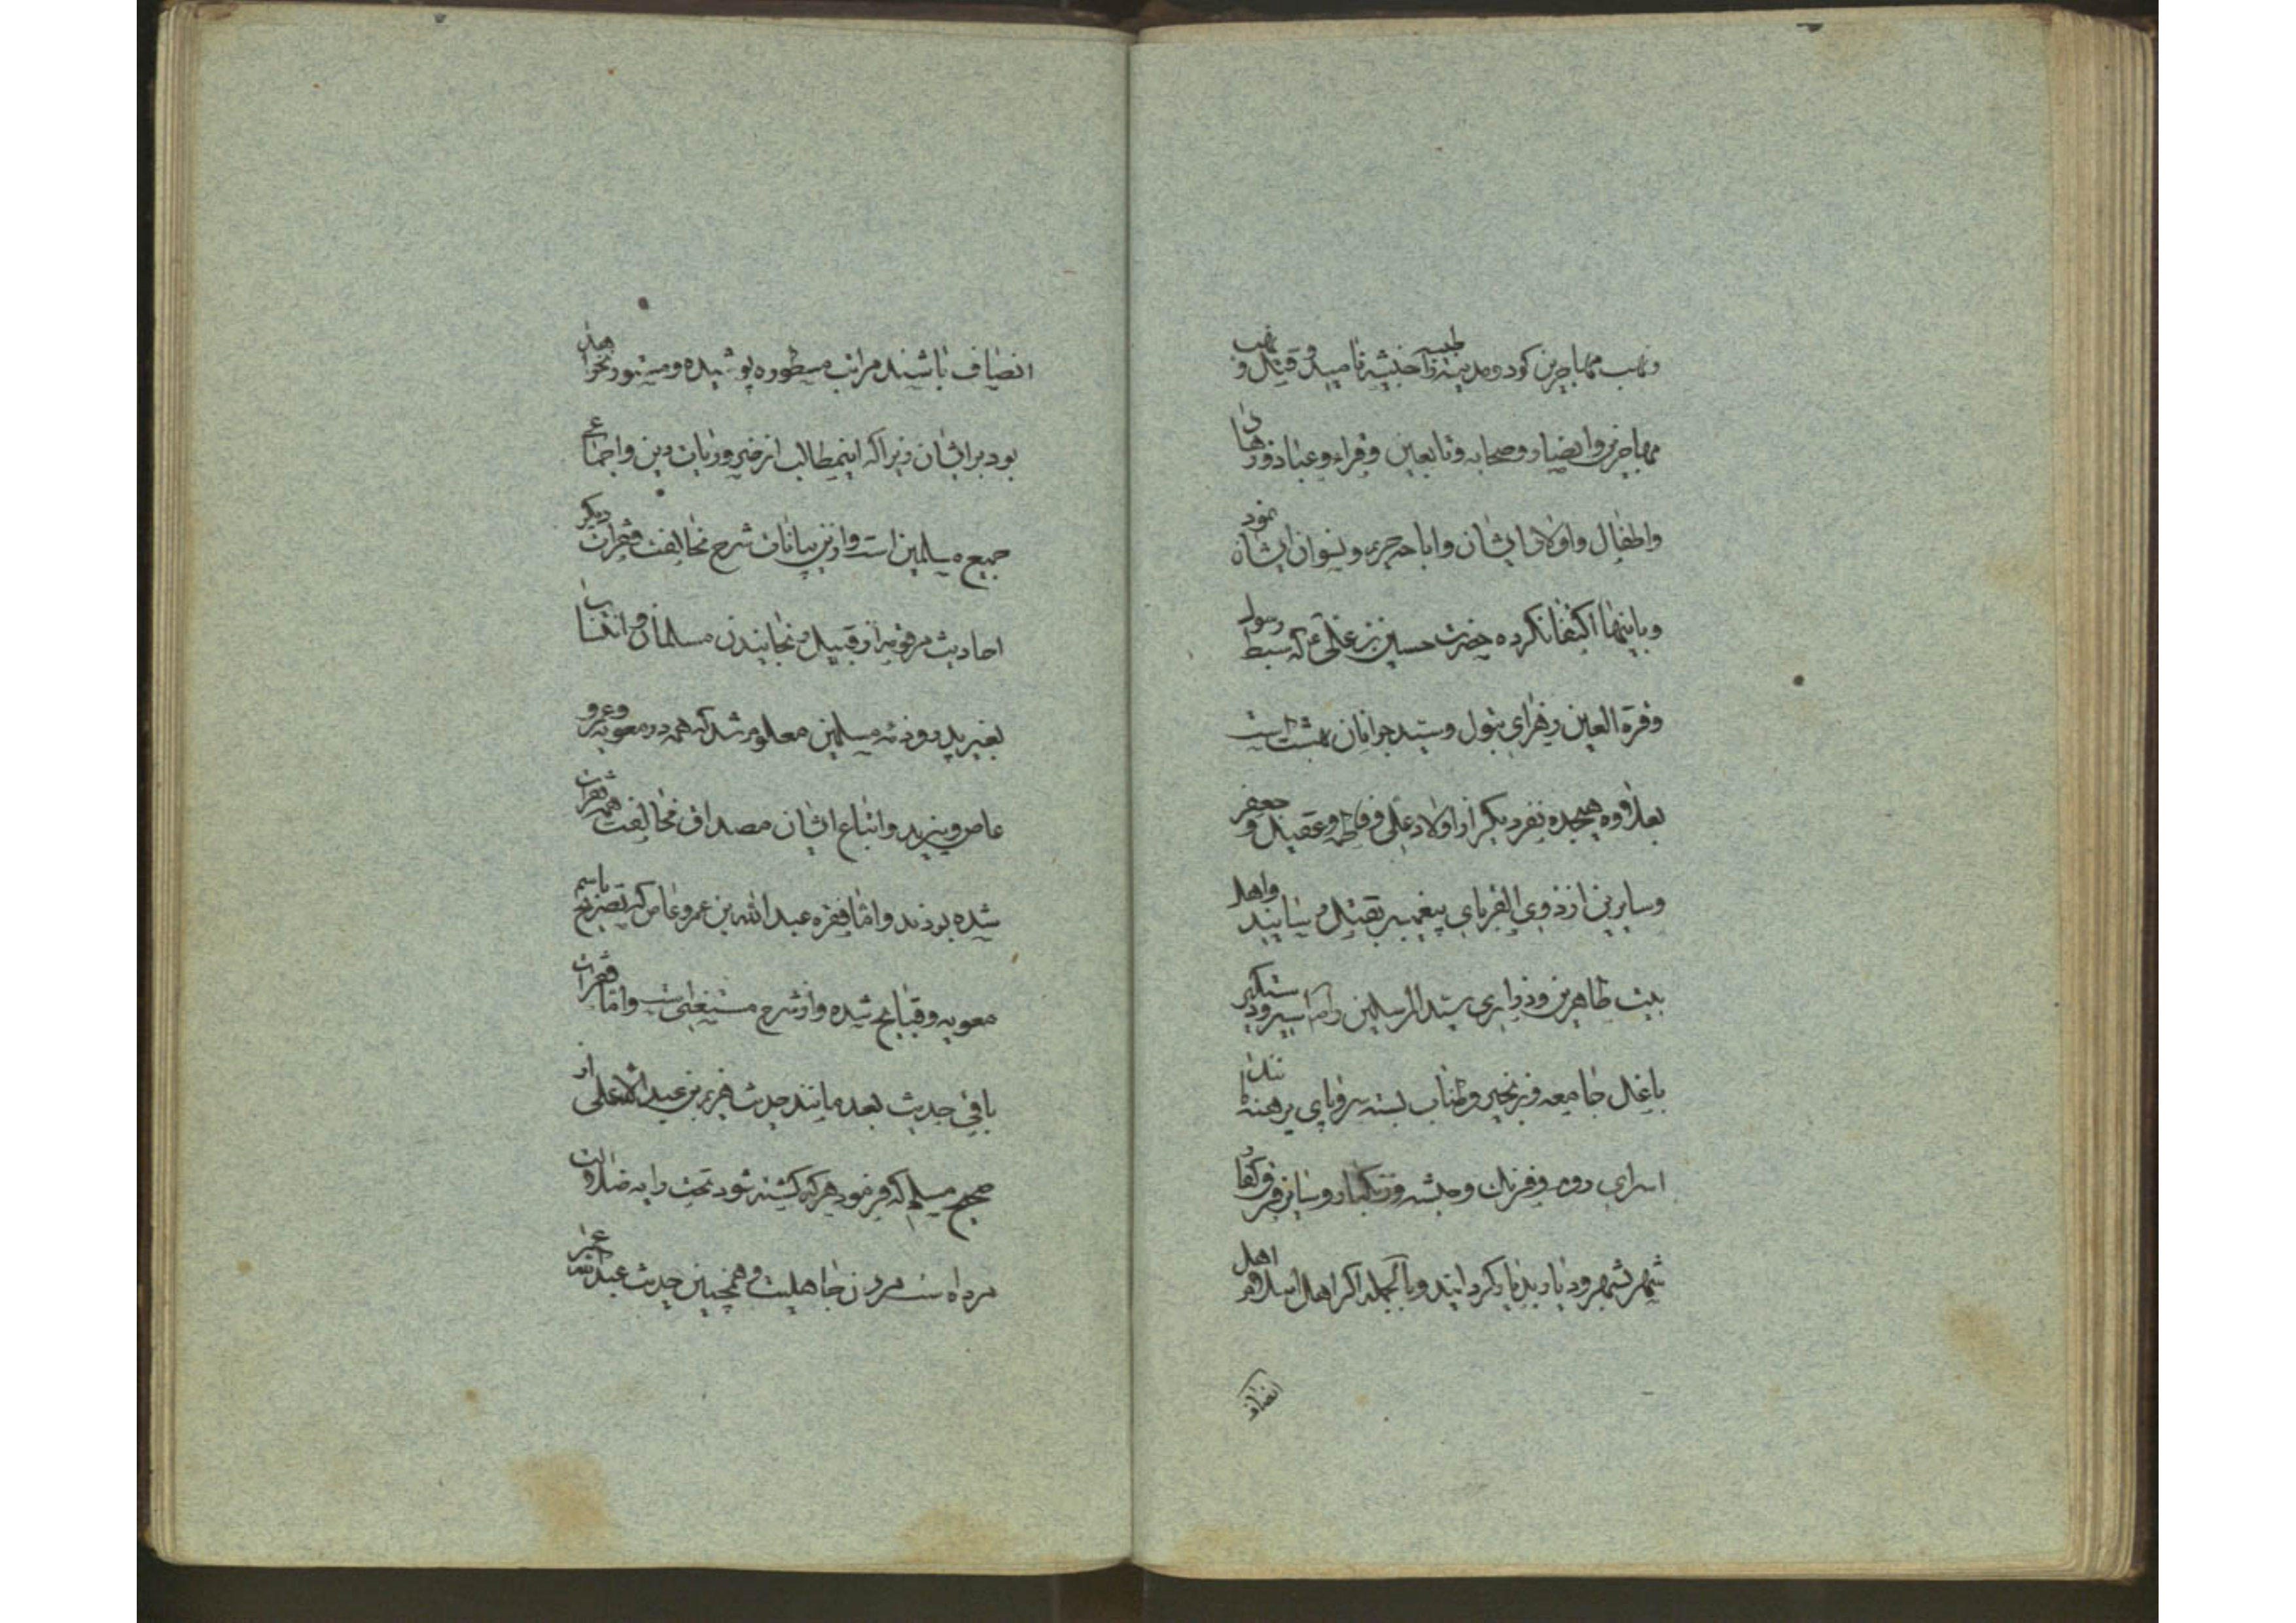 ونهب مهاجرین کود و مدینه طیبه را خبیثه نامید و قتل و نهب
مهاجرین و انصار و صحابه و تابعین و قراء و عباد و زهاد
و اطفال و اولاد ایشان و اباحه حریم و نسوان ایشان نمود
و باینها اکتفا نکرده حضرت حسین بن علی ع که سبط رسول
و قرة العین زهرای بتول و سید جوانان بهشت است
بعلاوه هیجده نفر دیگر از اولاد علی و فاطمه و عقیل و جعفر
و سایرین از ذوی القربای پیغمبر بقتل میرسانند و اهل
بیت طاهرین و ذراری سید المرسلین را اسیر و دستگیر
با غل جامعه و زنجیر و طناب بسته سر و پای برهنه مانند
اسرای روم و فرنک و حبشه و زنکبار و سایر فرق کفار
شهر بشهر و دیار بدیار گردانیدند و بالجمله اکر اهل اسلام اهل
انصاف
انصاف باشند مراتب مسطوره پوشیده و مستور نخواهد
بود بر ایشان زیرا که اینمطالب از ضروریات دین و اجماعی
جمیع مسلمین است و ازین بیانات شرح مخالفت فقرات دیگر
احادیث مرقومه از قبیل رنجانیدن مسلمانان و انتساب
بغیر پدر و ذمه مسلمین معلوم شد که همه در معویه و عمرو
عاص و یزید و اتباع ایشان مصداق مخالفت همه فقرات
شده بودند و اما فقره عبدالله بن عمرو عاص که تصریح باسم
معویه و قبایح شده و از شرح مستغنی است و اما فقرات
باقی حدیث بعد مانند حدیث هریم بن عبدالاعلی از
صحیح مسلم که فرمود هرکه کشته شود تحت رایه ضلالت
مرده است مردن جاهلیت و همچنین حدیث عبدالله عمر